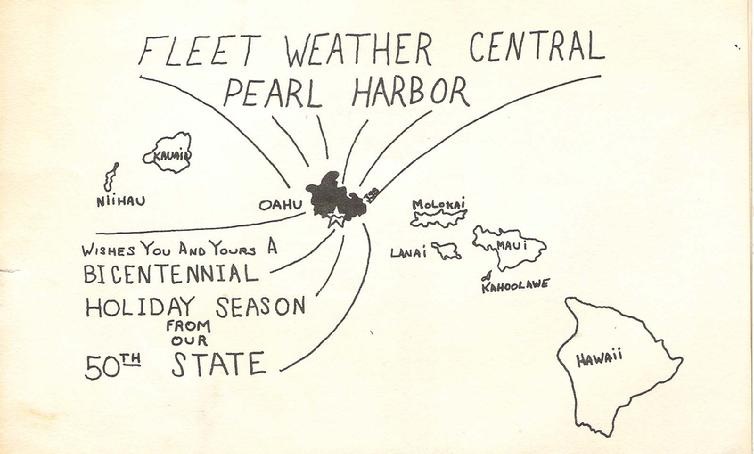 FLEET WEATHER CENTRAL
PEARL HARBOR
KAUAII
NIIHAU
OAHU
MOLOKAI
LANAI
MAUI
KAHOOLAWE
HAWAII
WISHES YOU AND YOURS A
BICENTENNIAL
HOLIDAY SEASON
FROM
OUR
50TH STATE